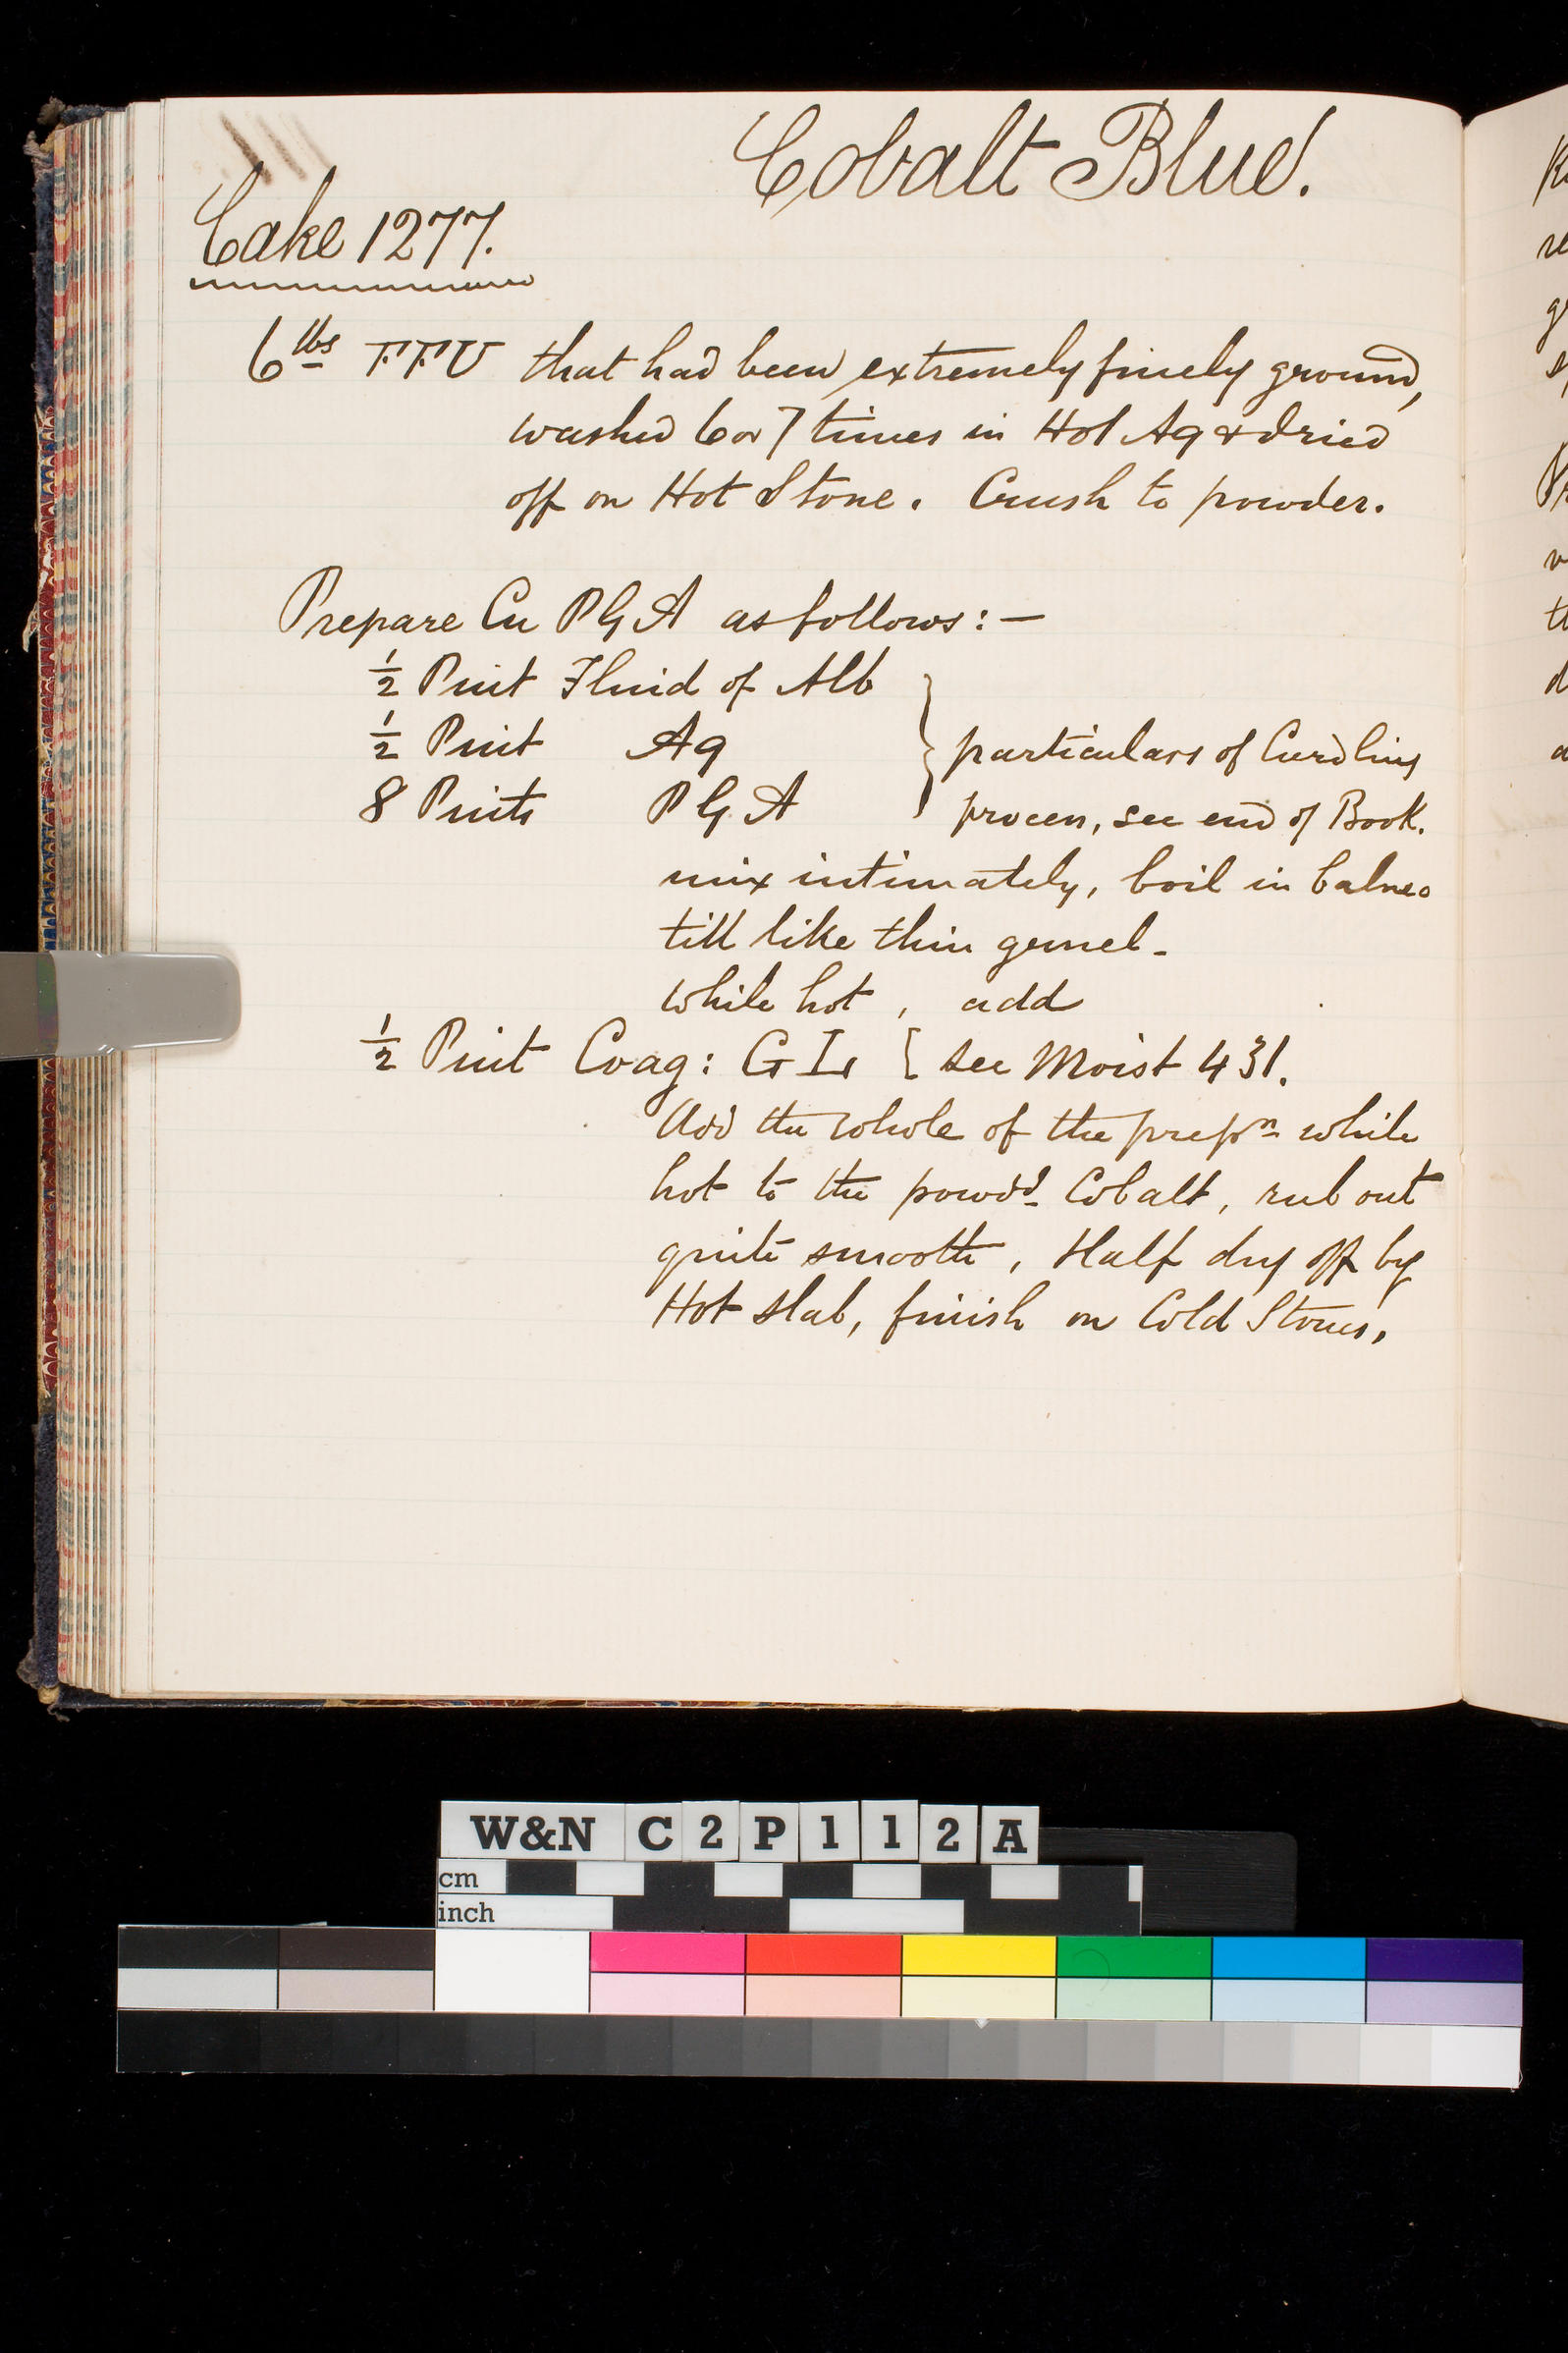 Cobalt Blue.
Cake 1277.
6 lbs FFU that had been extremely finely ground,
washed 6 or 7 times in Hot Aq & dried
off on Hot Stone. Crush to powder.
Prepare Cu P G A as follows:—
1/2 Pint Fluid of Alb
1/2 Pint Aq } particulars of Curdling
8 Pints P G A process, see end of Book.
mix intimately, boil in balneo
till like thin gruel.
while hot, add
1/2 Pint Coag: G [ see Moist 431.
Add the whole of the prepn while
hot to the powdd Cobalt, rub out
quite smooth, Half dry off by
Hot slab, finish on Cold Stones,
W&N C2P112A
cm
inch